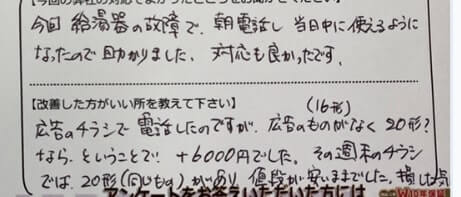 今回 給湯器の故障で、朝電話し 当日中に使えるように
なったので助かりました。対応も良かったです。
【改善した方がいい所を教えて下さい】
(16形)
広告のチラシで電話したのですが、広告のものがなく 20形?
なら、ということで、+6000円でした。その週末のチラシ
では、20形(同じもの)があり、値段が安いままでした、損した気
アンケートをお答えいただいた方には